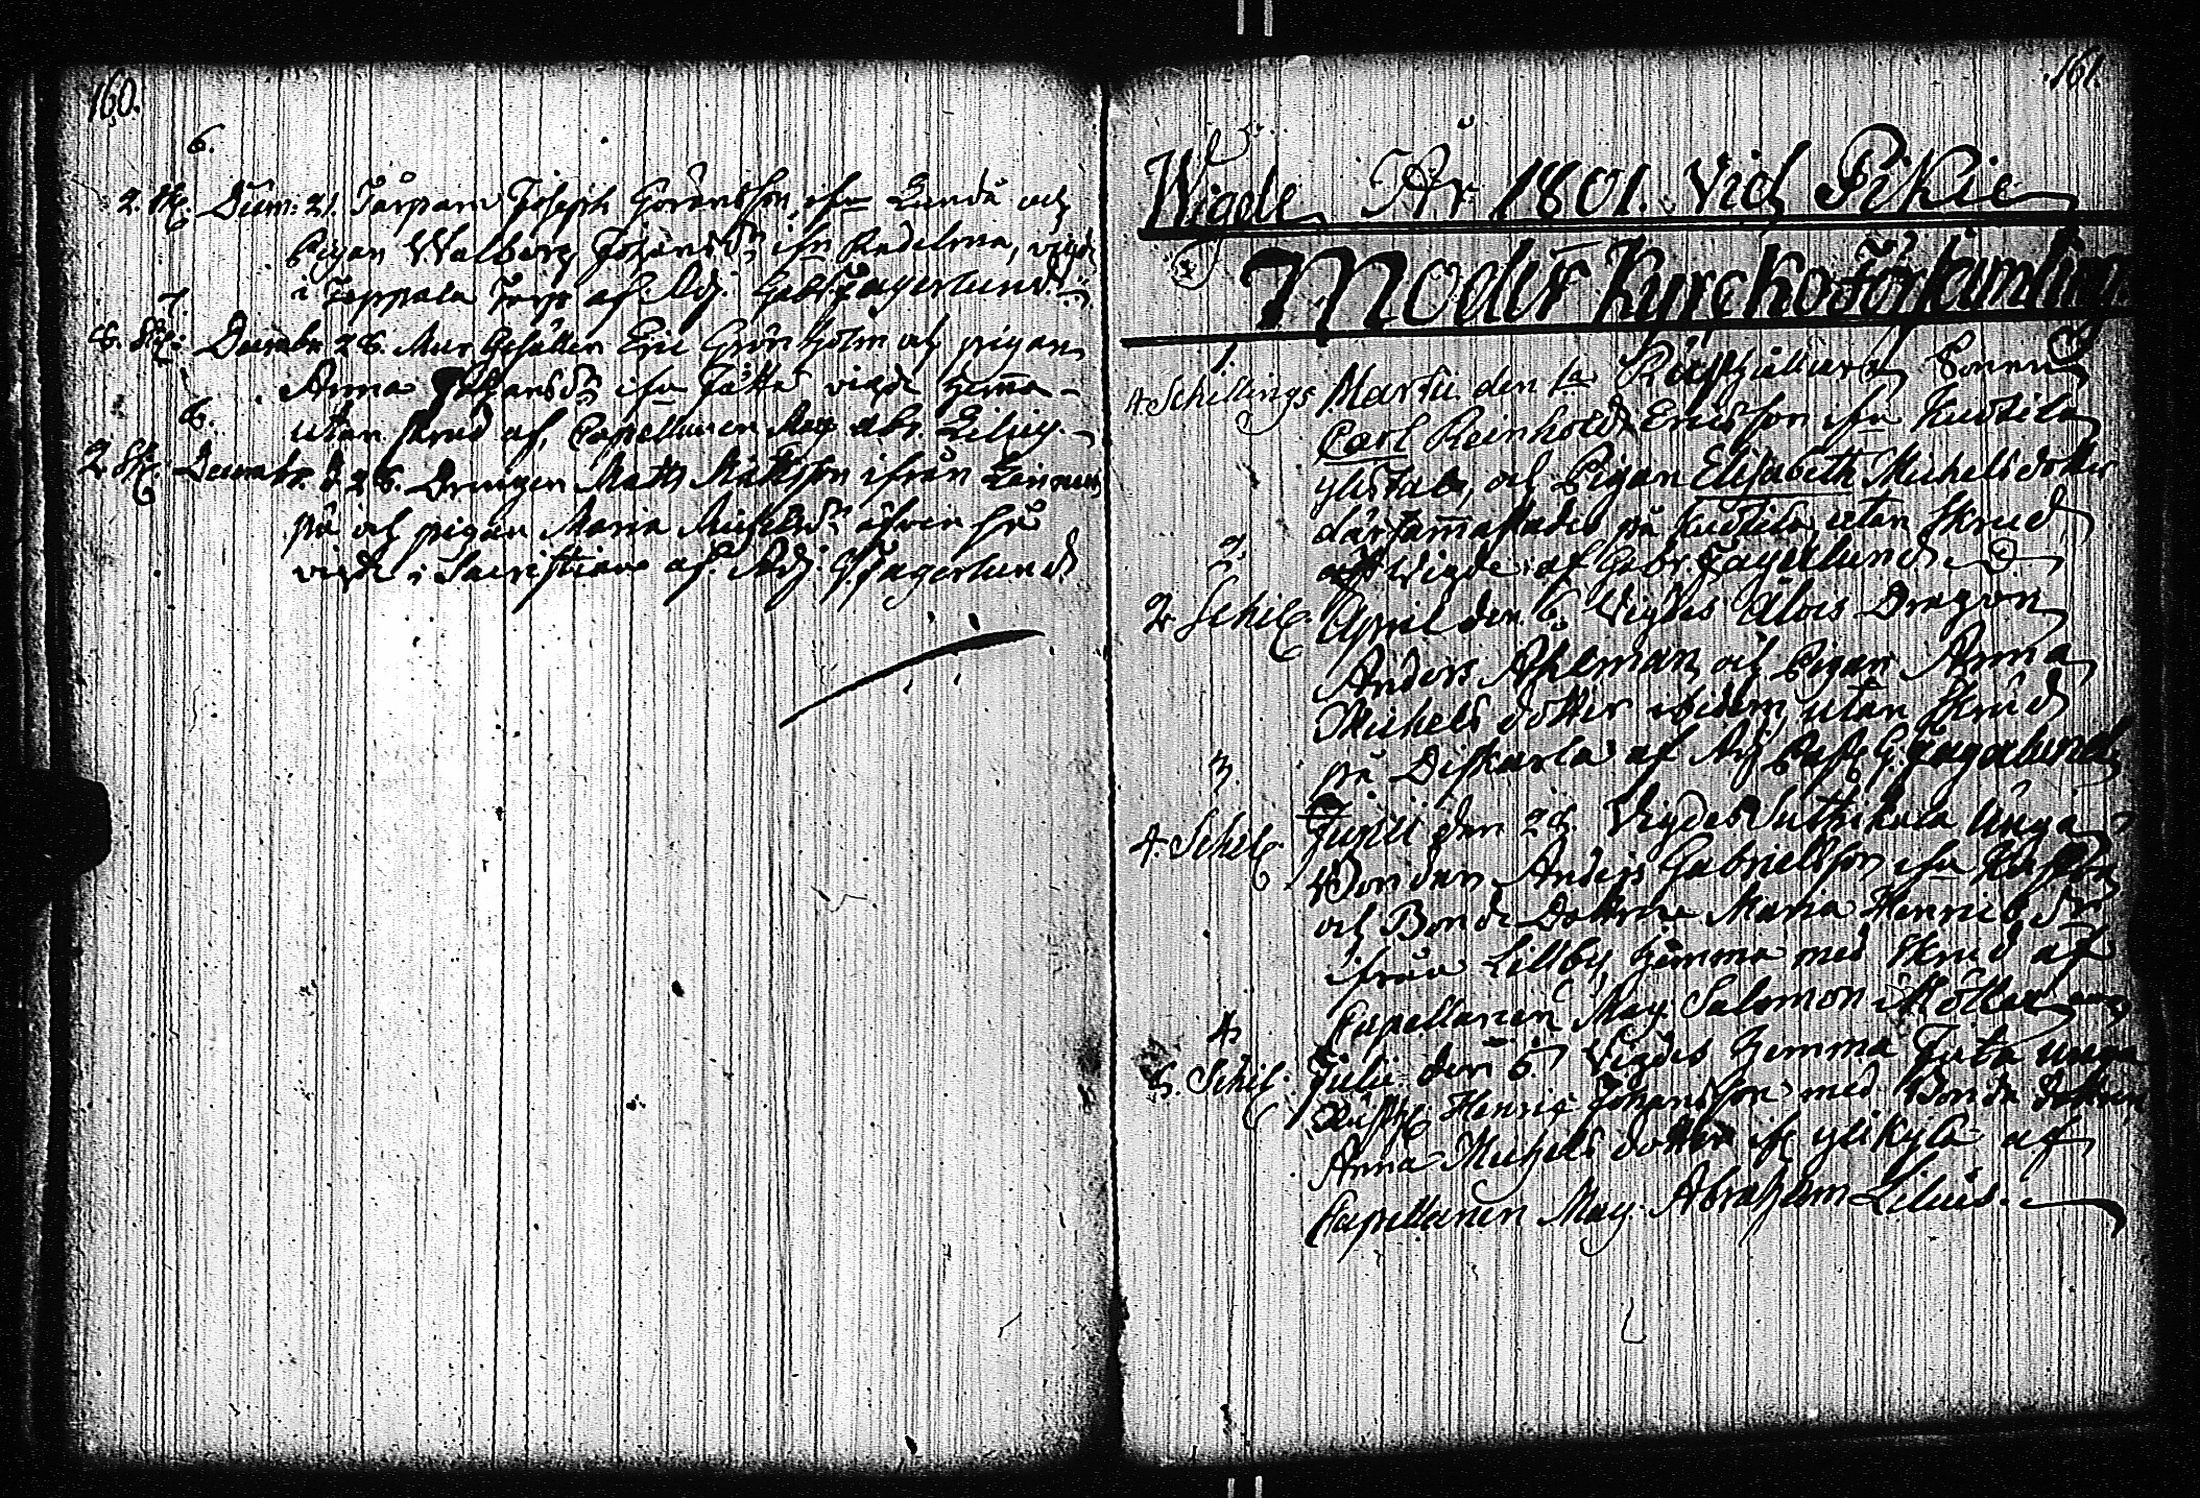 160.
6.
2. sk. Decem: 21. Torparen Joseph Göransson ifrn Lunda och
Pigan Walborg Johansdr ifn Radelma, vigde
i Torp af Adj. Gabr. Fagerlund.
7.
8. sk: Decembr 28. Mur Gesällen Eric Grönholm och pigan
Anna Johansdr ifrn vigde hemma
utan skrud af Capellanen Mag Abr. Lilius.
8.
2 sk. Decembr. d. 28. Drengen Matts Mattsson ifrån
på och pigan Maria Michelsdr
vigde i Sacristian af Adj. G. Fagerlund
161.
Wigde År 1801. vid Pikie
Moder Kyrcko Församling
1.
4 Schillings Martii den 1ta Rusthållare Sonen
Carl Reinhold Ericsson ifrn Kustila
och Pigan Elisabeth Michelsdotter
därsammastädes på Kustila utan Skrud
Wigde af Gabr. Fagerlund
2.
2. Schil. April den 6. Wigdes Dragon
Anders Ahlman och Pigan Anna
Michels dotter ibidem utan Skrud
på Diskarla af Adj. Past. G. Fagerlund
3.
4. Schil. Junii den 28. Wigdes unga
Bonden Anders Gabrielsson ifrn
och Bonde Dottren Maria Henrics dr
ifrån Lillby hemma med skrud af
Capellanen Mag Salomon Möller
4.
5. Schil. Julii den 5 Wigdes hemma unga
Rusth. Henric Johansson med Bonde dottren
Anna Michels dotter ifr Ylikylä af
Capellanen Mag. Abraham Lilius.